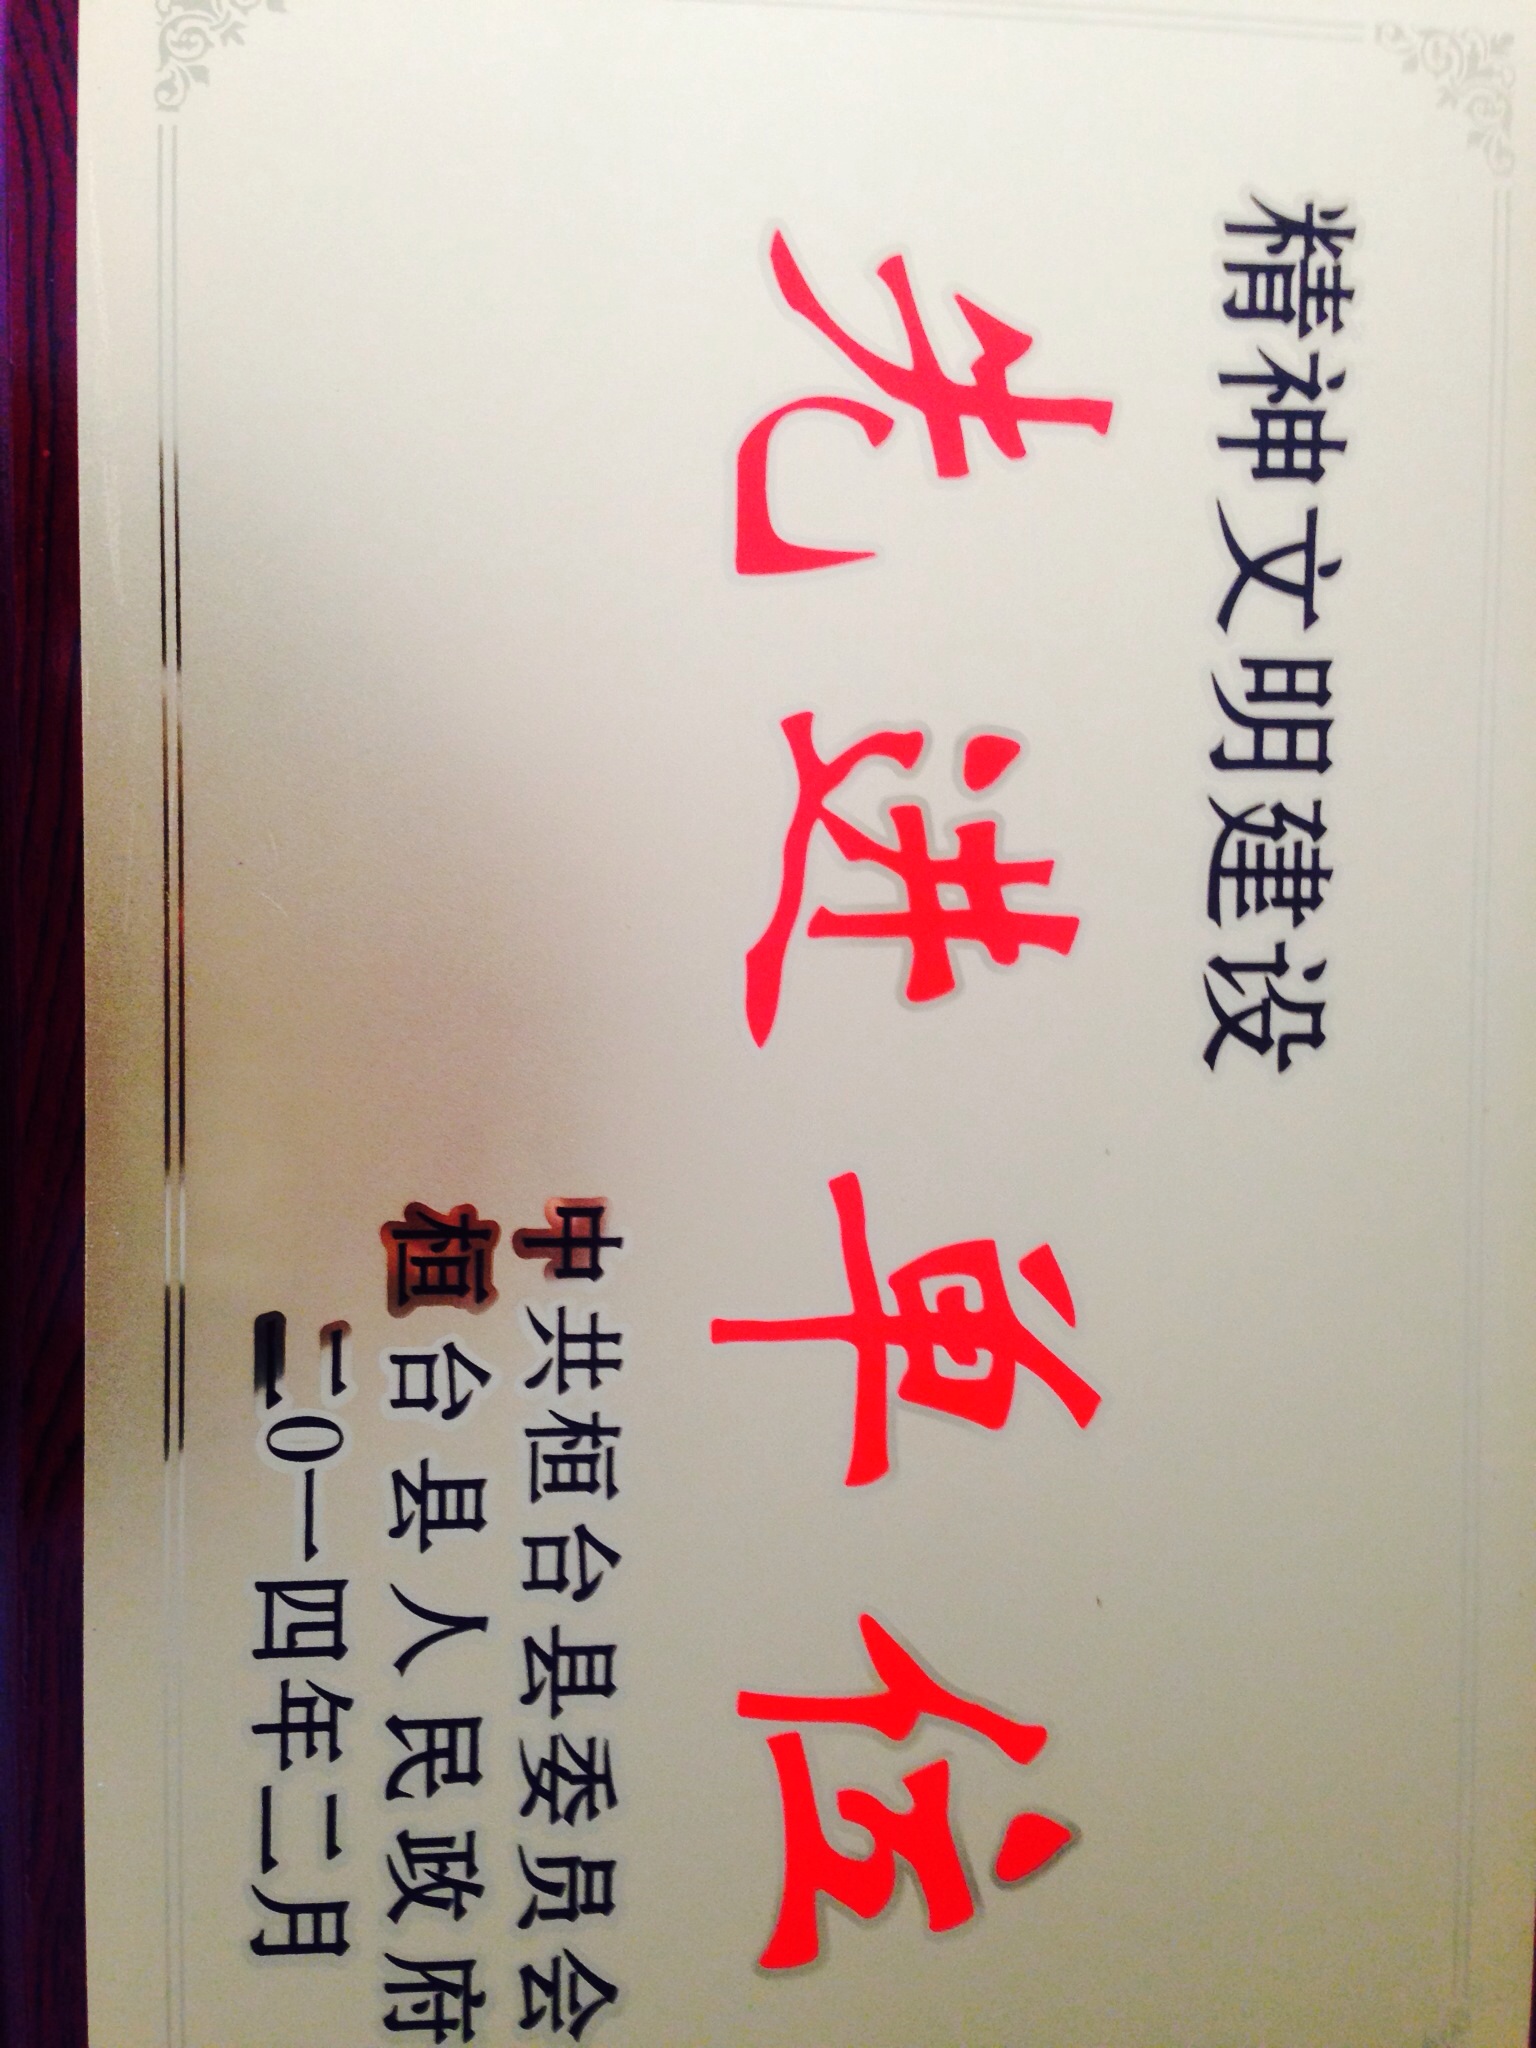 精神文明建设
先进单位
中共桓台县委员会
桓台县人民政府
二0一四年二月